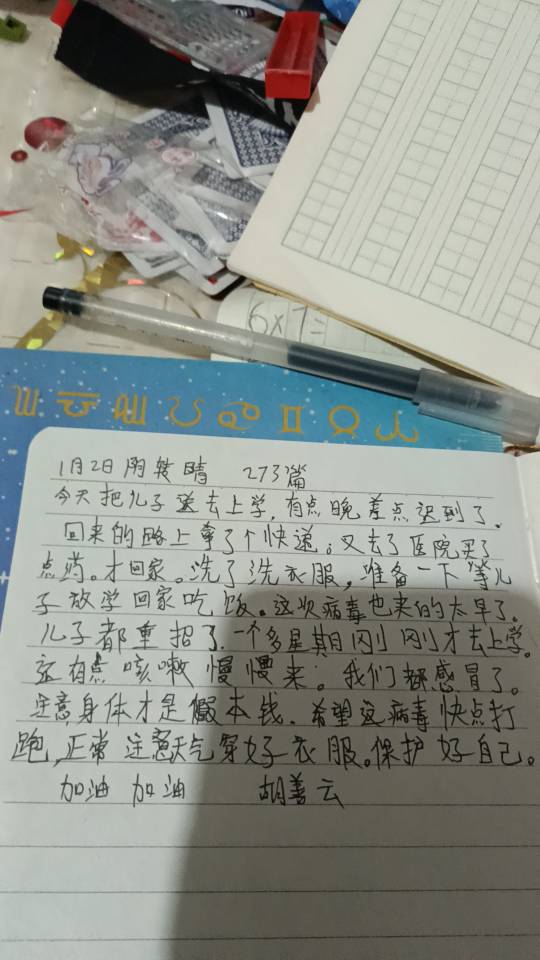 6×7=
1月2日阴转晴 273篇
今天把儿子送去上学,有点晚差点迟到了。
回来的路上拿了个快递。又去了医院买了
点药。才回家。洗了洗衣服,准备一下等儿
子放学回家吃饭。这次病毒也来的太早了。
儿子都重招了.一个多星期刚刚才去上学。
还有点咳嗽慢慢来。我们都感冒了。
注意身体才是本钱.希望这病毒快点打
跑,正常注意天气穿好衣服。保护好自己。
加油 加油 胡善云